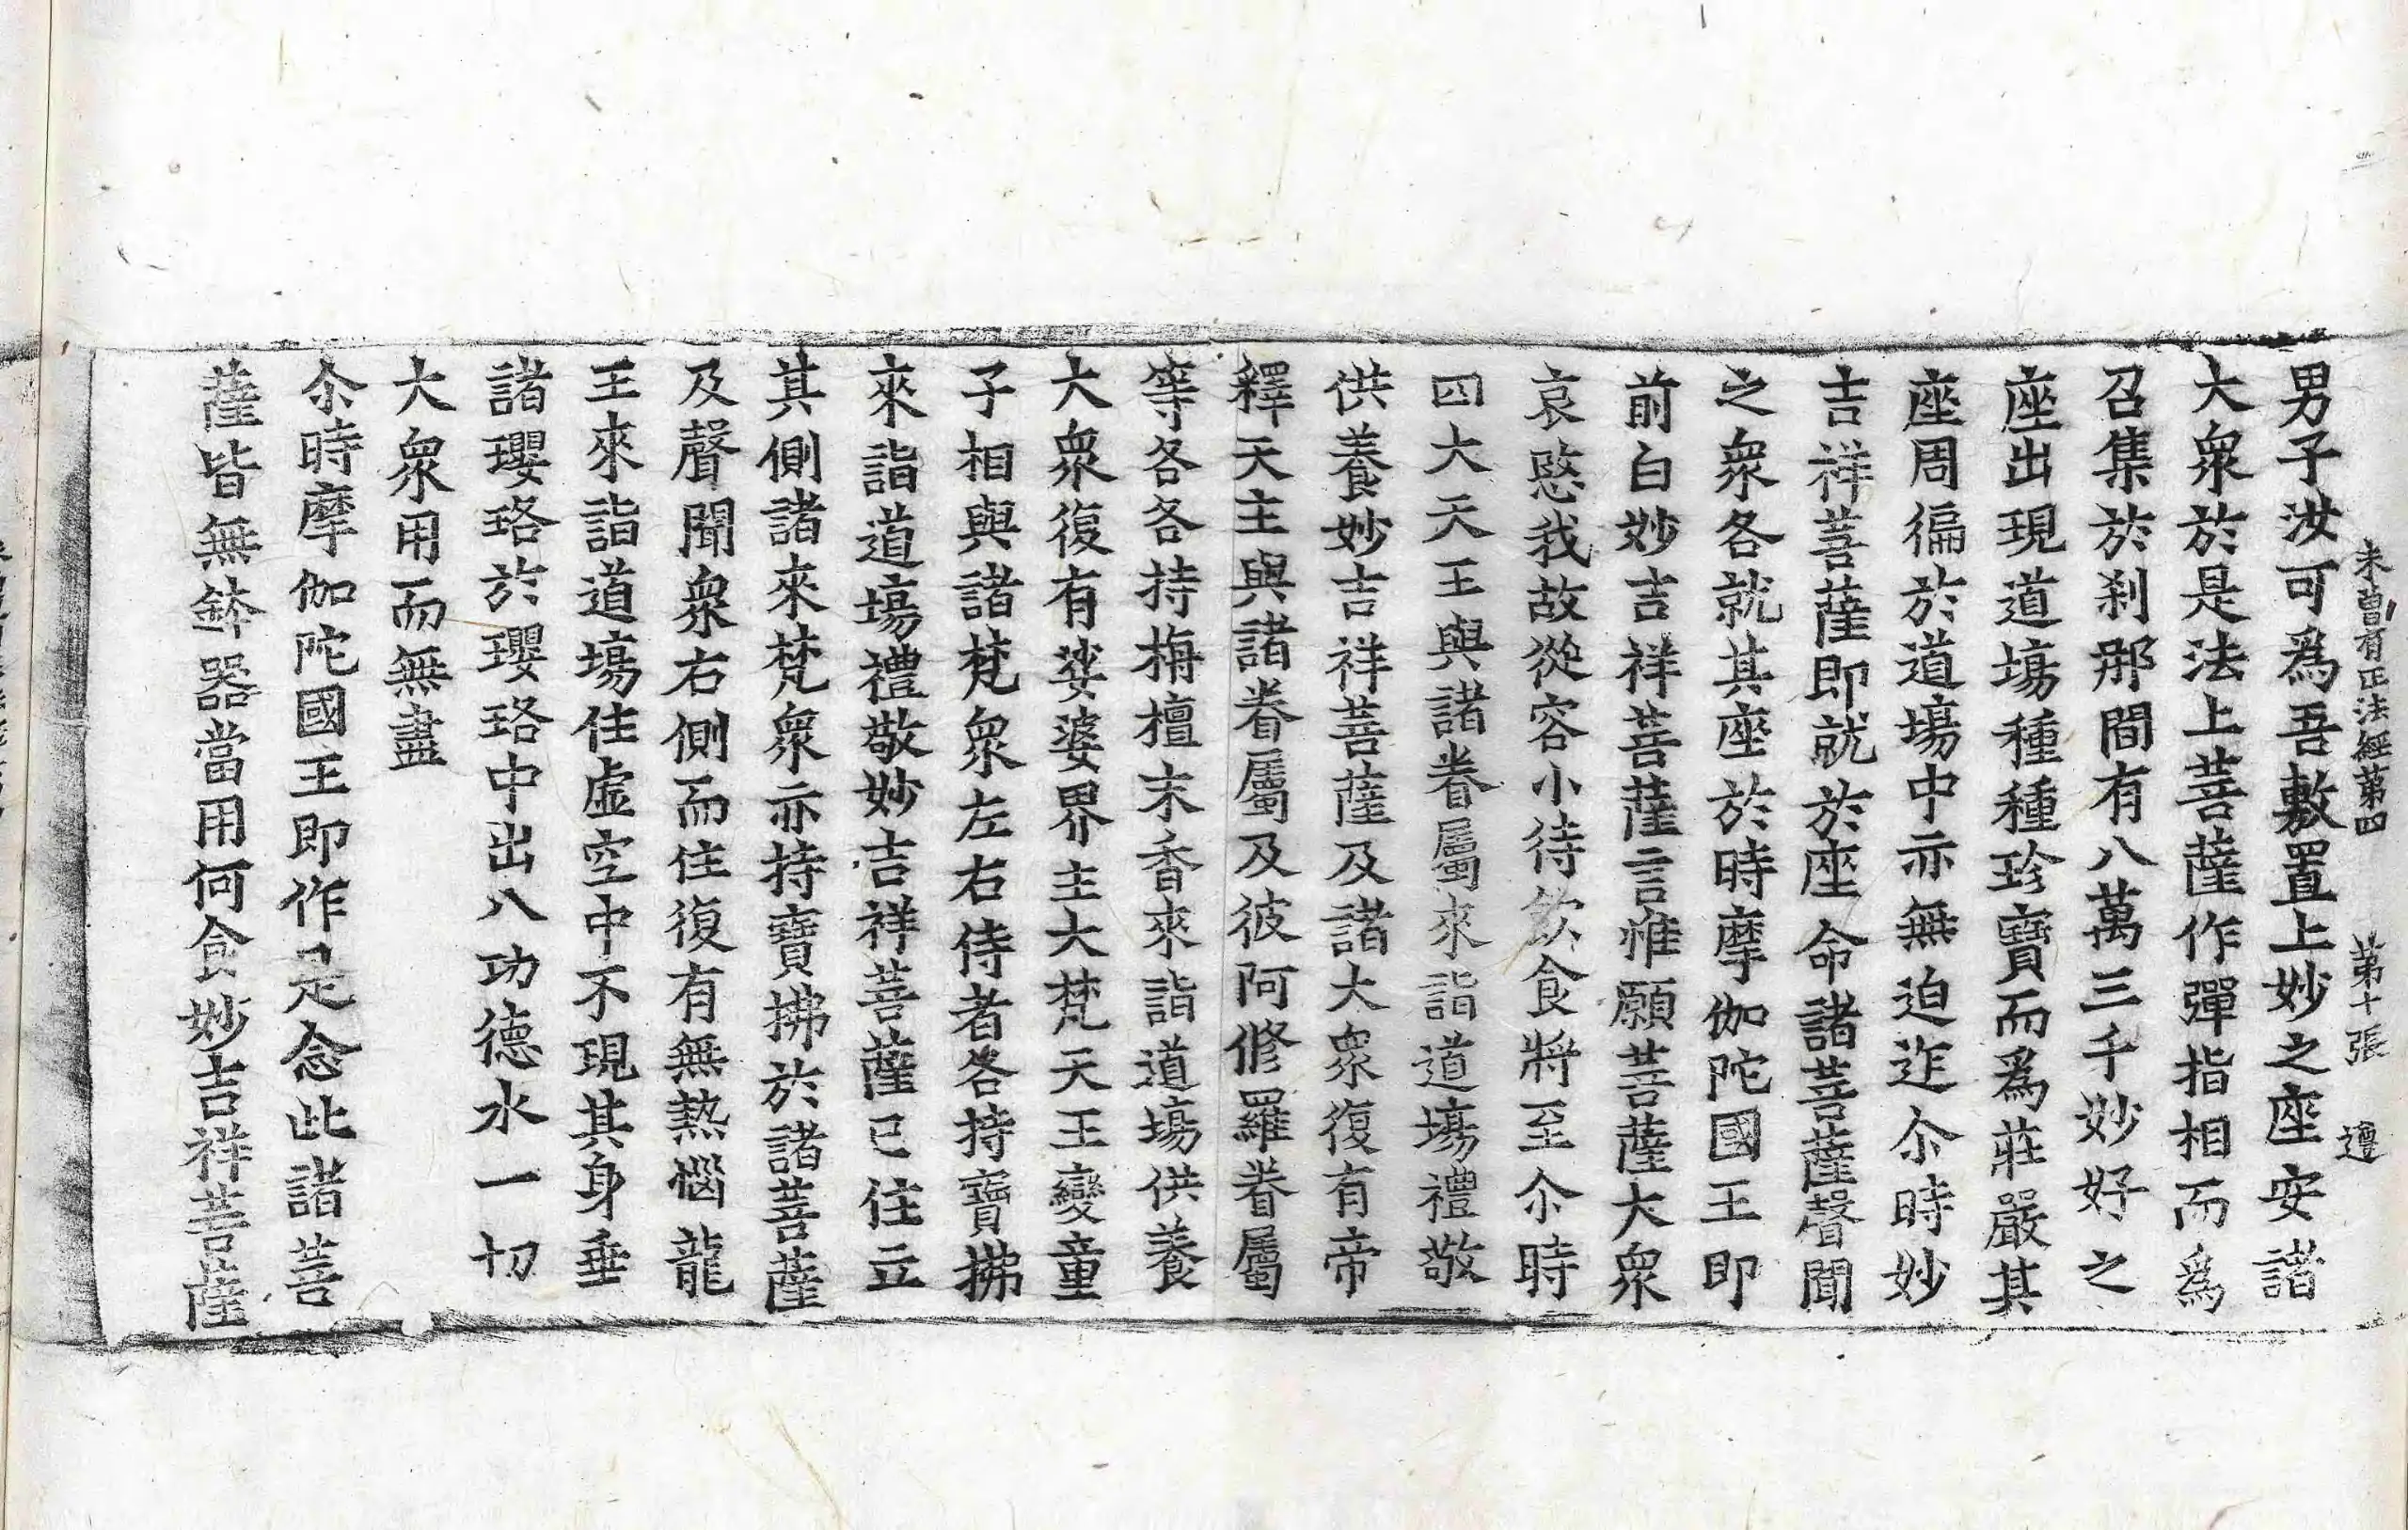 未曾有正法經第四 第十張 遵
男子汝可爲吾敷置上妙之座安諸
大衆於是法上菩薩作彈指相而爲
召集於刹那間有八萬三千妙好之
座出現道場種種珍寶而爲莊嚴其
座周徧於道場中亦無迫迮尒時妙
吉祥菩薩即就於座命諸菩薩聲聞
之衆各就其座於時摩伽陀國王即
前白妙吉祥菩薩言惟願菩薩大衆
哀愍我故從容小待飮食將至尒時
四大天王與諸眷屬來詣道場禮敬
供養妙吉祥菩薩及諸大衆復有帝
釋天主與諸眷屬及彼阿修羅眷屬
等各各持栴檀末香來詣道場供養
大衆復有娑婆界主大梵天王變童
子相與諸梵衆左右侍者各持寶拂
來詣道場禮敬妙吉祥菩薩已住立
其側諸來梵衆亦持寶拂於諸菩薩
及聲聞衆右側而住復有無熱惱龍
王來詣道場住虛空中不現其身垂
諸瓔珞於瓔珞中出八功德水一切
大衆用而無盡
尒時摩伽陀國王即作是念此諸菩
薩皆無鉢器當用何食妙吉祥菩薩